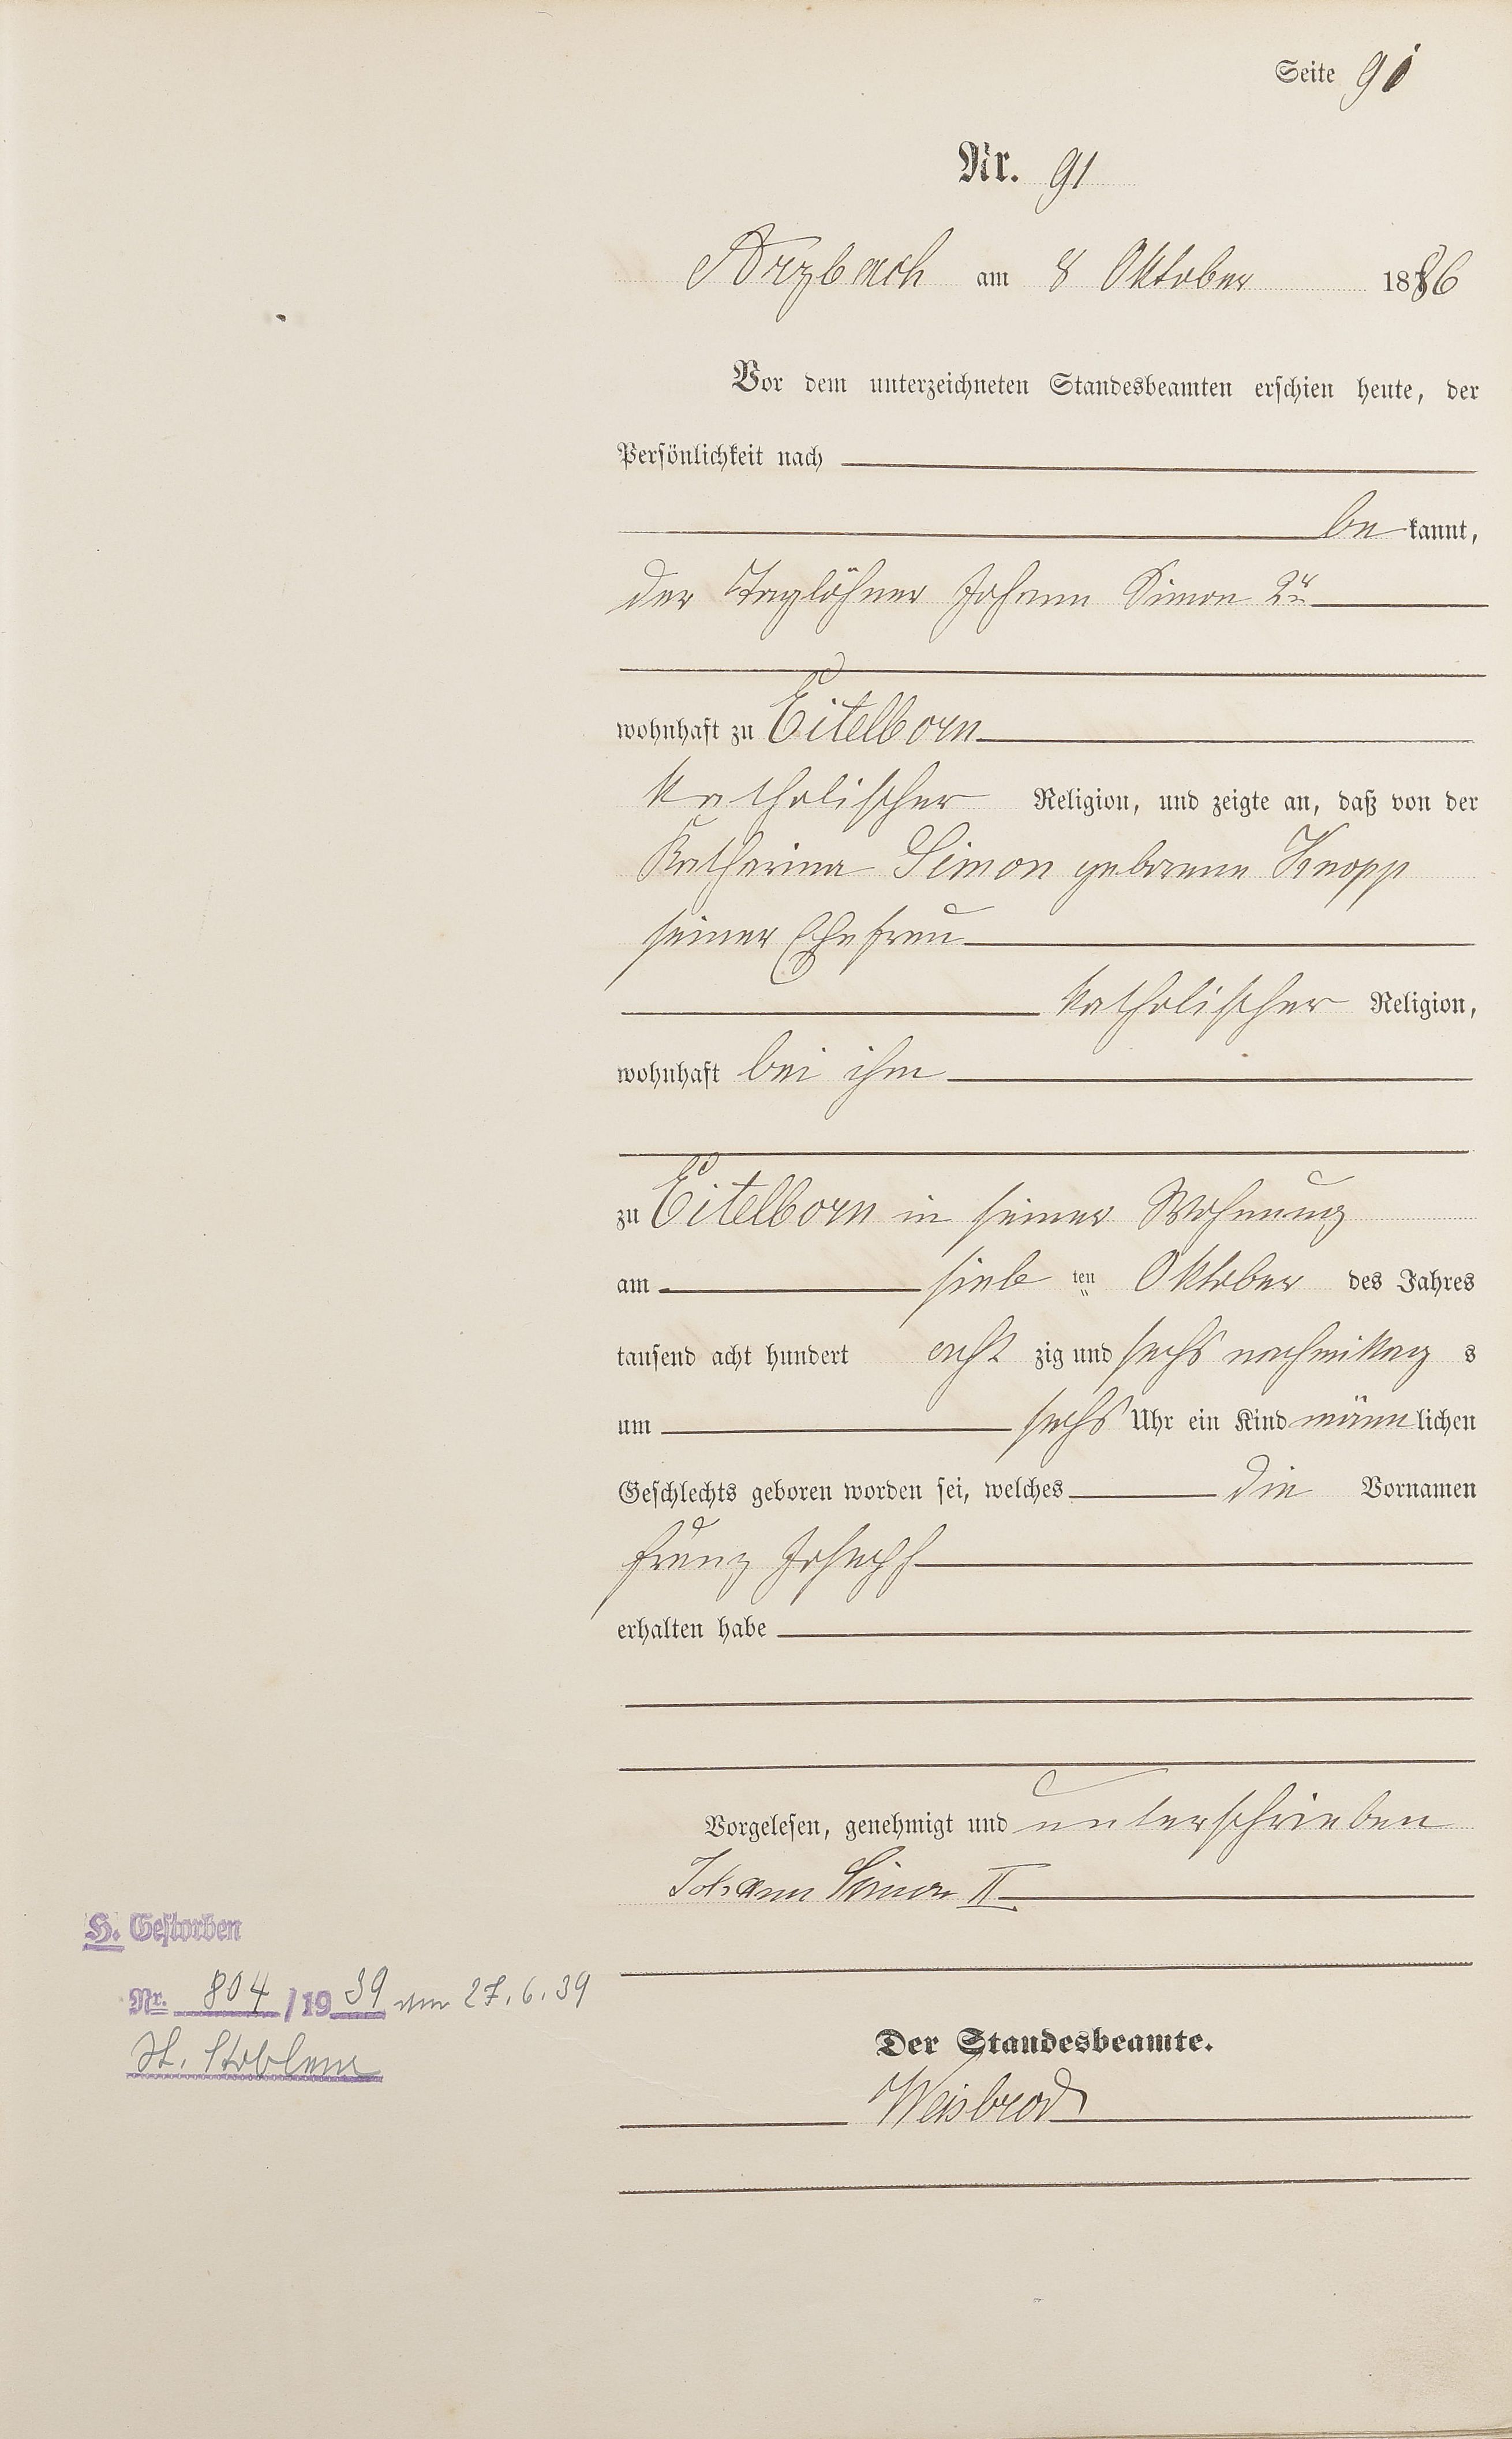 Seite 91
Nr. 91
Arzbach am 8 Oktober 1886
Vor dem unterzeichneten Standesbeamten erschien heute, der
Persönlichkeit nach
be kannt,
der Taglöhner Johann Simon 2r
wohnhaft zu Eitelborn
katholischer Religion, und zeigte an, daß von der
Katharina Simon geborene Knopp
seiner Ehefrau
katholischer Religion,
wohnhaft bei ihm
zu Eitelborn in seiner Wohnung
am sieb ten Oktober des Jahres
tausend acht hundert acht zig und sechs nachmittag s
um sechs Uhr ein Kind männ lichen
Geschlechts geboren worden sei, welches die Vornamen
Franz Joseph
erhalten habe
Vorgelesen, genehmigt und unterschrieben
Johann Simon II
H. Gestorben
Nr. 804 / 19 39 am 27.6.39
Der Standesbeamte.
Weisbrod